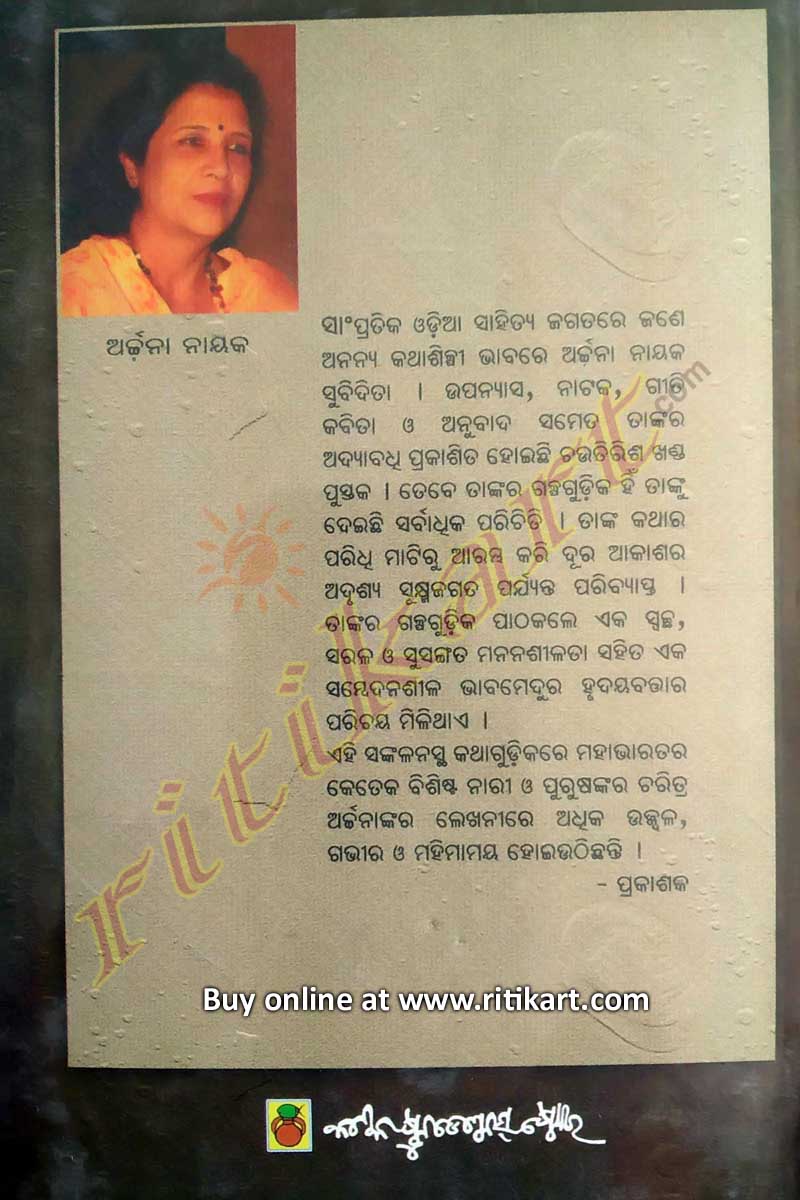 ଅର୍ଚ୍ଚନା ନାୟକ
ସାଂପ୍ରତିକ ଓଡ଼ିଆ ସାହିତ୍ୟ ଜଗତରେ ଜଣେ
ଅନନ୍ୟ କଥାଶିଳ୍ପୀ ଭାବରେ ଅର୍ଚ୍ଚନା ନାୟକ
ସୁବିଦିତା । ଉପନ୍ୟାସ, ନାଟକ, ଗୀତି
କବିତା ଓ ଅନୁବାଦ ସମେତ ତାଙ୍କର
ଅଦ୍ୟାବଧି ପ୍ରକାଶିତ ହୋଇଛି ଚଉତିରିଶ ଖଣ୍ଡ
ପୁସ୍ତକ । ତେବେ ତାଙ୍କର ଗଳ୍ପଗୁଡ଼ିକ ହିଁ ତାଙ୍କୁ
ଦେଇଛି ସର୍ବାଧିକ ପରିଚିତି । ତାଙ୍କ କଥାର
ପରିଧି ମାଟିରୁ ଆରମ୍ଭ କରି ଦୂର ଆକାଶର
ଅଦୃଶ୍ୟ ସୂକ୍ଷ୍ମଜଗତ ପର୍ଯ୍ୟନ୍ତ ପରିବ୍ୟାପ୍ତ ।
ତାଙ୍କର ଗଳ୍ପଗୁଡ଼ିକ ପାଠକଲେ ଏକ ସ୍ୱଚ୍ଛ,
ସରଳ ଓ ସୁସଙ୍ଗତ ମନନଶୀଳତା ସହିତ ଏକ
ସମ୍ବେଦନଶୀଳ ଭାବମେଦୁର ହୃଦୟବତ୍ତାର
ପରିଚୟ ମିଳିଥାଏ ।
ଏହି ସଙ୍କଳନସ୍ଥ କଥାଗୁଡ଼ିକରେ ମହାଭାରତର
କେତେକ ବିଶିଷ୍ଟ ନାରୀ ଓ ପୁରୁଷଙ୍କର ଚରିତ୍ର
ଅର୍ଚ୍ଚନାଙ୍କର ଲେଖନୀରେ ଅଧିକ ଉଜ୍ଜ୍ୱଳ,
ଗଭୀର ଓ ମହିମାମୟ ହୋଇଉଠିଛନ୍ତି ।
- ପ୍ରକାଶକ
ritikart.com
Buy online at www.ritikart.com
କଟକ ଷ୍ଟୁଡେଣ୍ଟସ୍ ଷ୍ଟୋର